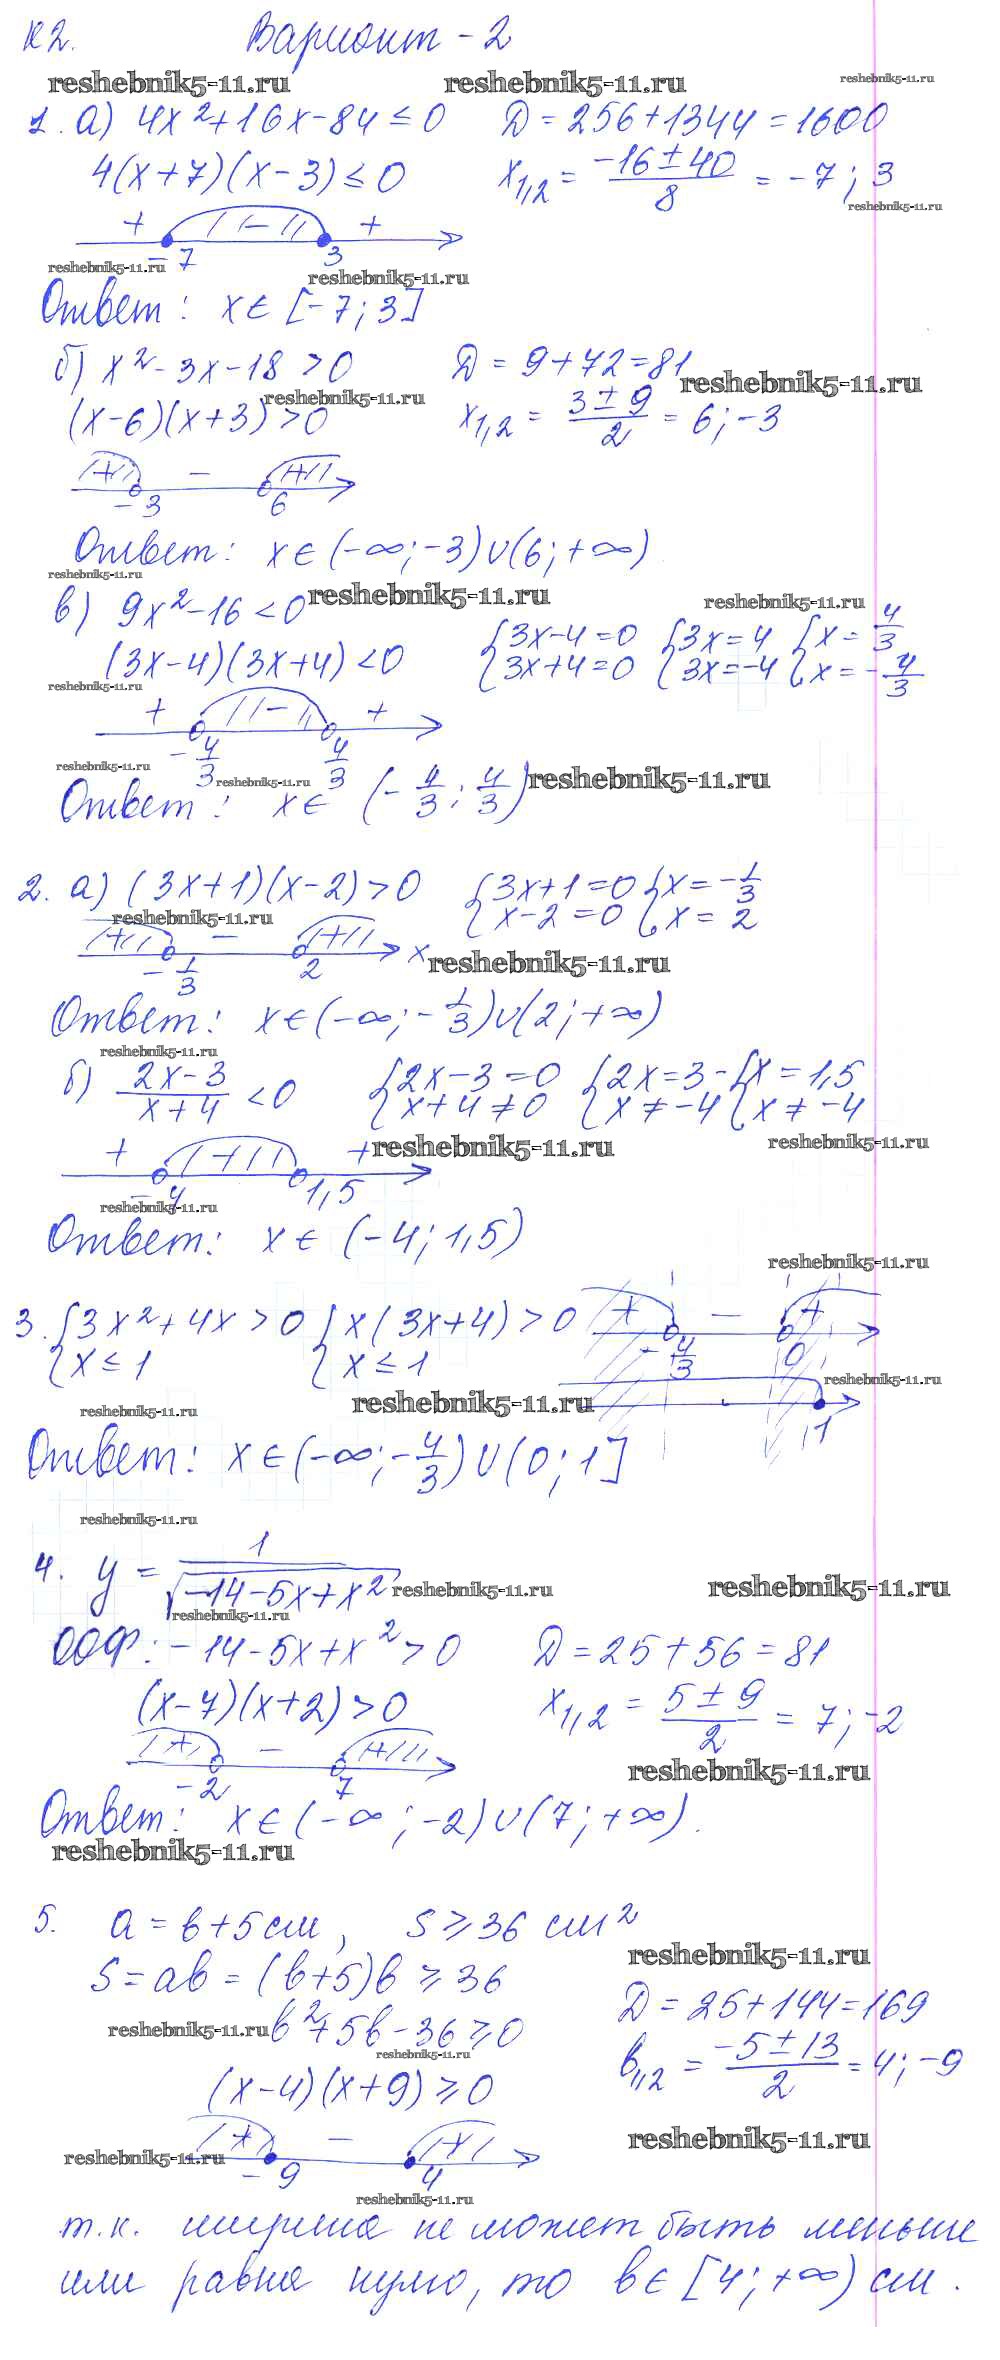 К2. Вариант - 2
reshebnik5-11.ru reshebnik5-11.ru reshebnik5-11.ru
1. а) 4x²+16x-84≤0 D=256+1344=1600
4(x+7)(x-3)≤0 x₁,₂ = (-16±40)/8 = -7; 3
reshebnik5-11.ru
+ - +
-7 3
reshebnik5-11.ru reshebnik5-11.ru
Ответ: x∈[-7;3]
б) x²-3x-18>0 D=9+72=81
reshebnik5-11.ru reshebnik5-11.ru
(x-6)(x+3)>0 x₁,₂ = (3±9)/2 = 6; -3
+ - +
-3 6
Ответ: x∈(-∞;-3)∪(6;+∞)
reshebnik5-11.ru reshebnik5-11.ru reshebnik5-11.ru
в) 9x²-16<0
(3x-4)(3x+4)<0 {3x-4=0 {3x=4 {x=4/3
{3x+4=0 {3x=-4 {x=-4/3
reshebnik5-11.ru
+ - +
-4/3 4/3
reshebnik5-11.ru reshebnik5-11.ru reshebnik5-11.ru
Ответ: x∈(-4/3;4/3)
2. а) (3x+1)(x-2)>0 {3x+1=0 {x=-1/3
{x-2=0 {x=2
reshebnik5-11.ru
+ - + x
-1/3 2
reshebnik5-11.ru
Ответ: x∈(-∞;-1/3)∪(2;+∞)
reshebnik5-11.ru
б) (2x-3)/(x+4)<0 {2x-3=0 {2x=3 - {x=1,5
{x+4≠0 {x≠-4 {x≠-4
reshebnik5-11.ru reshebnik5-11.ru
+ + +
-4 1,5
reshebnik5-11.ru
Ответ: x∈(-4;1,5)
reshebnik5-11.ru
3. {3x²+4x>0 {x(3x+4)>0 + - +
{x≤1 {x≤1 -4/3 0
reshebnik5-11.ru
reshebnik5-11.ru reshebnik5-11.ru
1
Ответ: x∈(-∞;-4/3)∪(0;1]
reshebnik5-11.ru
4. y = 1/√(-14-5x+x²)
reshebnik5-11.ru reshebnik5-11.ru
reshebnik5-11.ru
ООФ: -14-5x+x²>0 D=25+56=81
(x-7)(x+2)>0 x₁,₂ = (5±9)/2 = 7; -2
+ - +
-2 7
reshebnik5-11.ru
Ответ: x∈(-∞;-2)∪(7;+∞).
reshebnik5-11.ru
5. a=b+5см, S≥36 см²
reshebnik5-11.ru
S=ab=(b+5)b≥36
reshebnik5-11.ru b²+5b-36≥0 D=25+144=169
reshebnik5-11.ru
(x-4)(x+9)≥0 b₁,₂ = (-5±13)/2 = 4; -9
+ - +
reshebnik5-11.ru reshebnik5-11.ru
-9 4
reshebnik5-11.ru
т.к. ширина не может быть меньше
или равна нулю, то b∈[4;+∞) см.